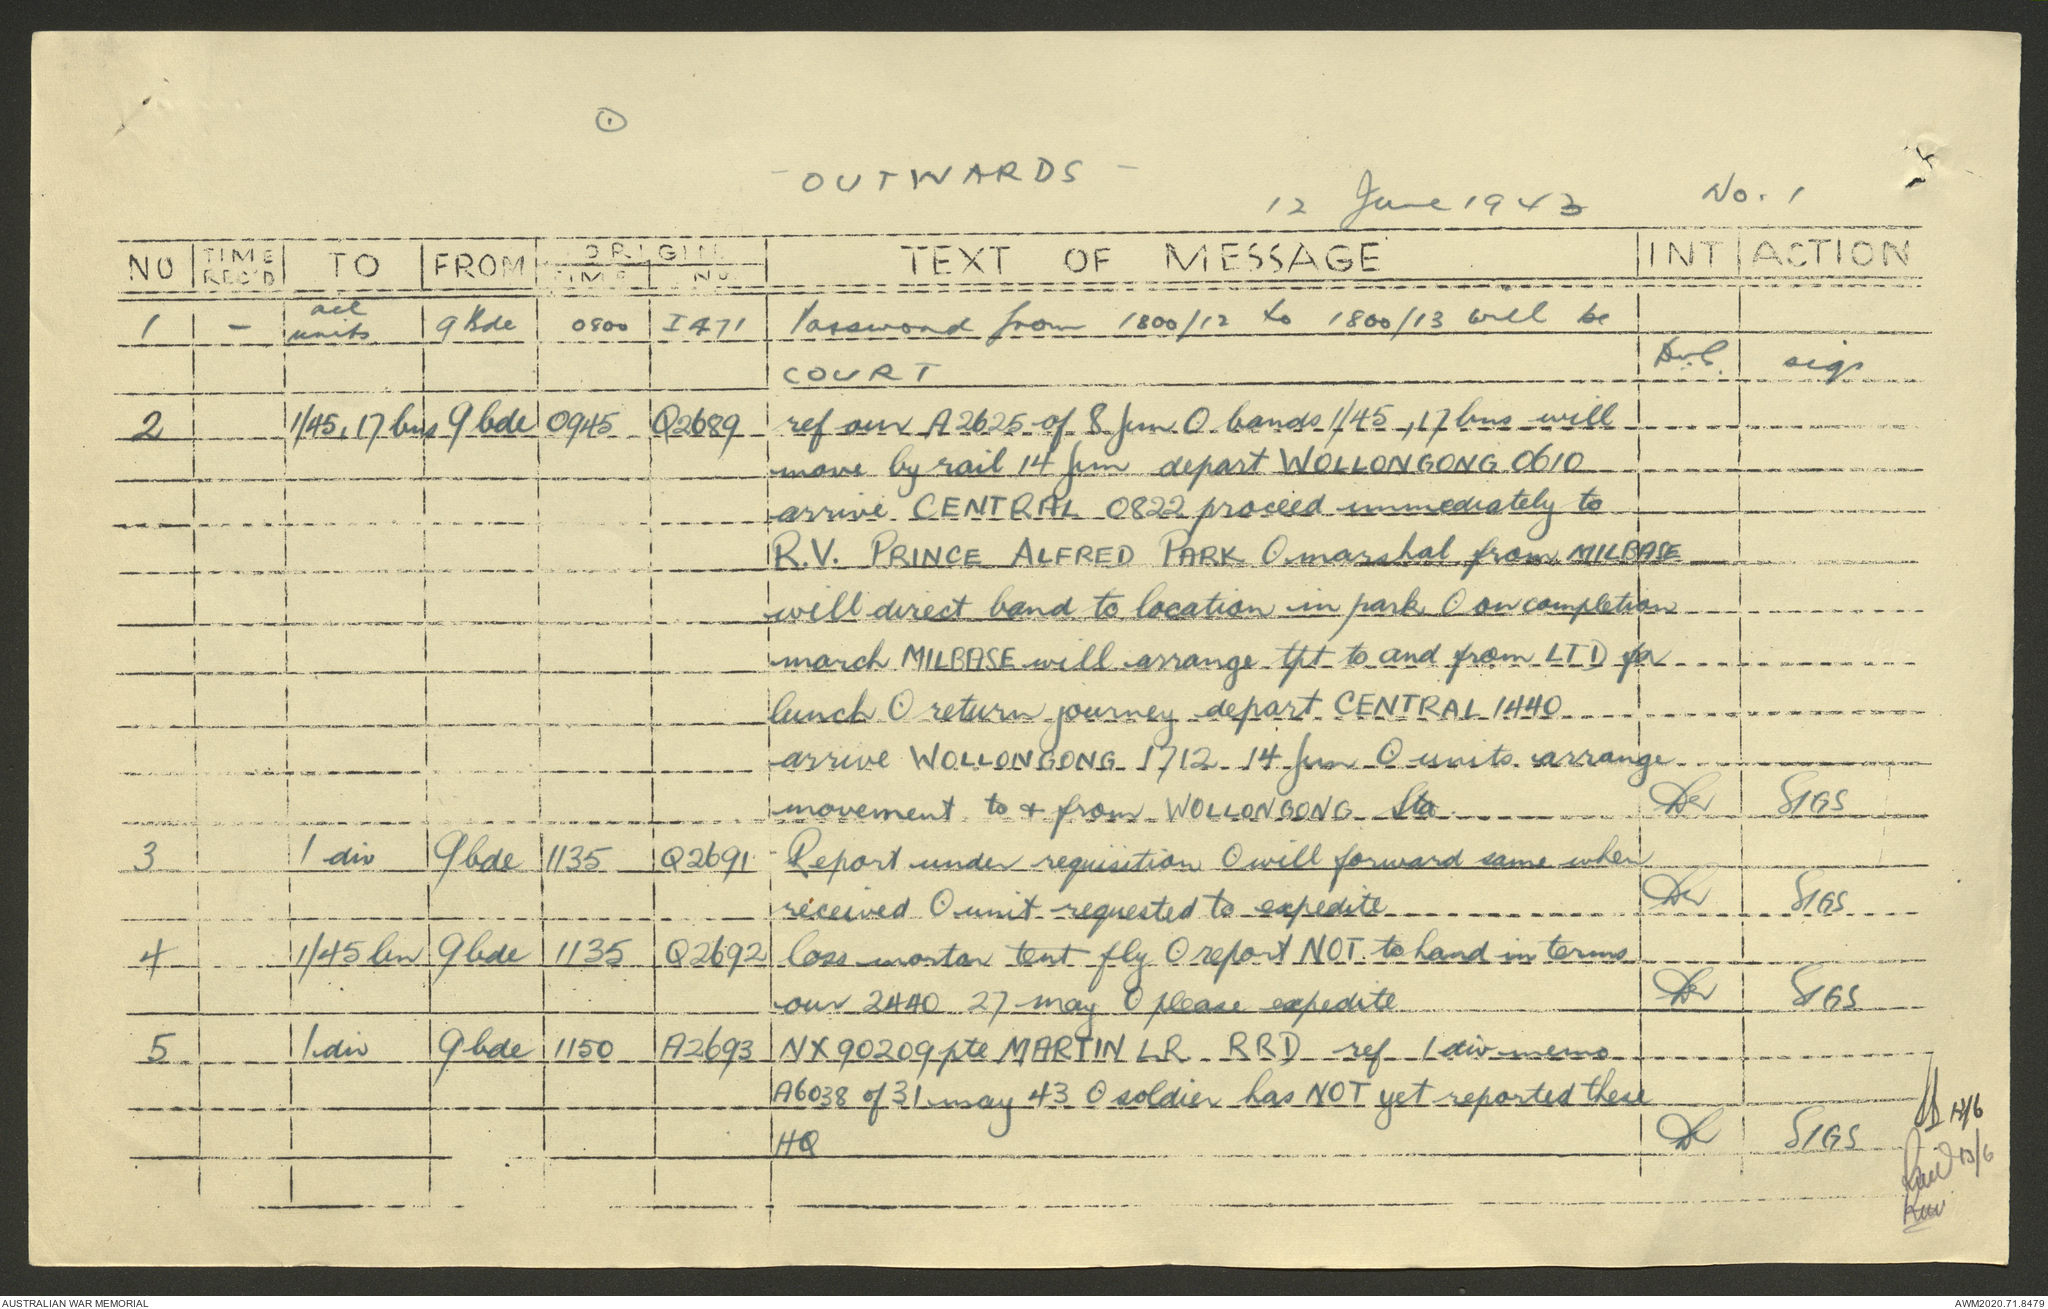 - OUTWARDS -
12 June 1943 No. 1
NO TIME REC'D TO FROM ORIGIN TIME NO. TEXT OF MESSAGE INT ACTION
1 - all units 9 Bde 0800 I471 Password from 1800/12 to 1800/13 will be
COURT sigs
2 1/45, 17 bns 9 bde 0945 Q2689 ref our A2625 of 8 Jun O bands 1/45, 17 bns will
move by rail 14 Jun depart WOLLONGONG 0610
arrive CENTRAL 0822 proceed immediately to
R.V. PRINCE ALFRED PARK O marshal from MILBASE
will direct band to location in park O on completion
march MILBASE will arrange tpt to and from LTD for
lunch O return journey depart CENTRAL 1440
arrive WOLLONGONG 1712 14 Jun O units arrange
movement to + from WOLLONGONG Sta. SIGS
3 1 div 9 bde 1135 Q2691 Report under requisition O will forward same when
received O unit requested to expedite SIGS
4 1/45 bn 9 bde 1135 Q2692 loss mortar tent fly O report NOT to hand in terms
our 2440 27 may O please expedite SIGS
5 1 div 9 bde 1150 A2693 NX90209 pte MARTIN LR RRD ref 1 div memo
A6038 of 31 may 43 O soldier has NOT yet reported these
HQ SIGS
12/6
13/6
AUSTRALIAN WAR MEMORIAL AWM2020.71.8479